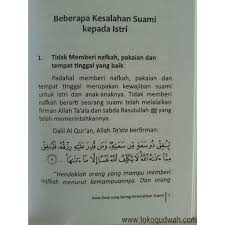 Beberapa Kesalahan Suami
kepada Istri
1. Tidak Memberi nafkah, pakaian dan
tempat tinggal yang baik
Padahal memberi nafkah, pakaian dan
tempat tinggal merupakan kewajiban suami
untuk istri dan anak-anaknya. Tidak memberi
nafkah berarti seorang suami telah melalaikan
firman Allah Ta'ala dan sabda Rasulullah ﷺ yang
telah memerintahkannya.
Dalil Al Qur'an, Allah Ta'ala berfirman:
لِيُنفِقْ ذُو سَعَةٍ مِّن سَعَتِهِ وَمَن قُدِرَ عَلَيْهِ رِزْقُهُ فَلْيُنفِقْ
مِمَّا آتَاهُ اللَّهُ لَا يُكَلِّفُ اللَّهُ نَفْسًا إِلَّا مَا آتَاهَا
"Hendaklah orang yang mampu memberi
nafkah menurut kemampuannya. Dan orang
Dosa-Dosa yang Sering Diremehkan Suami
www.tokoqudwah.com